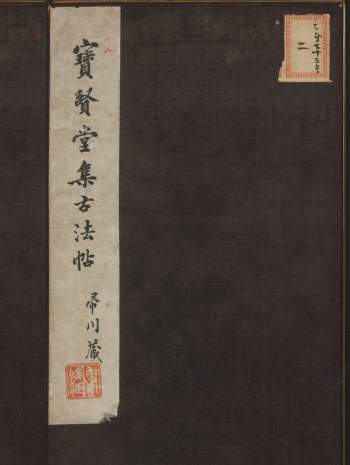 寶賢堂集古法帖
帚川蔵
二